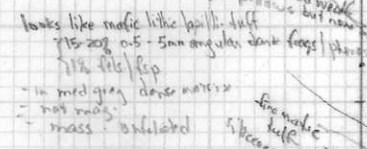 looks like mafic lithic lapilli-tuff
15-20% 0.5-5mm angular dark frags/
1% fels/fsp
- in med grey dense matrix
- not mag.
- mass. unfoliated
but
fine mafic
tuff